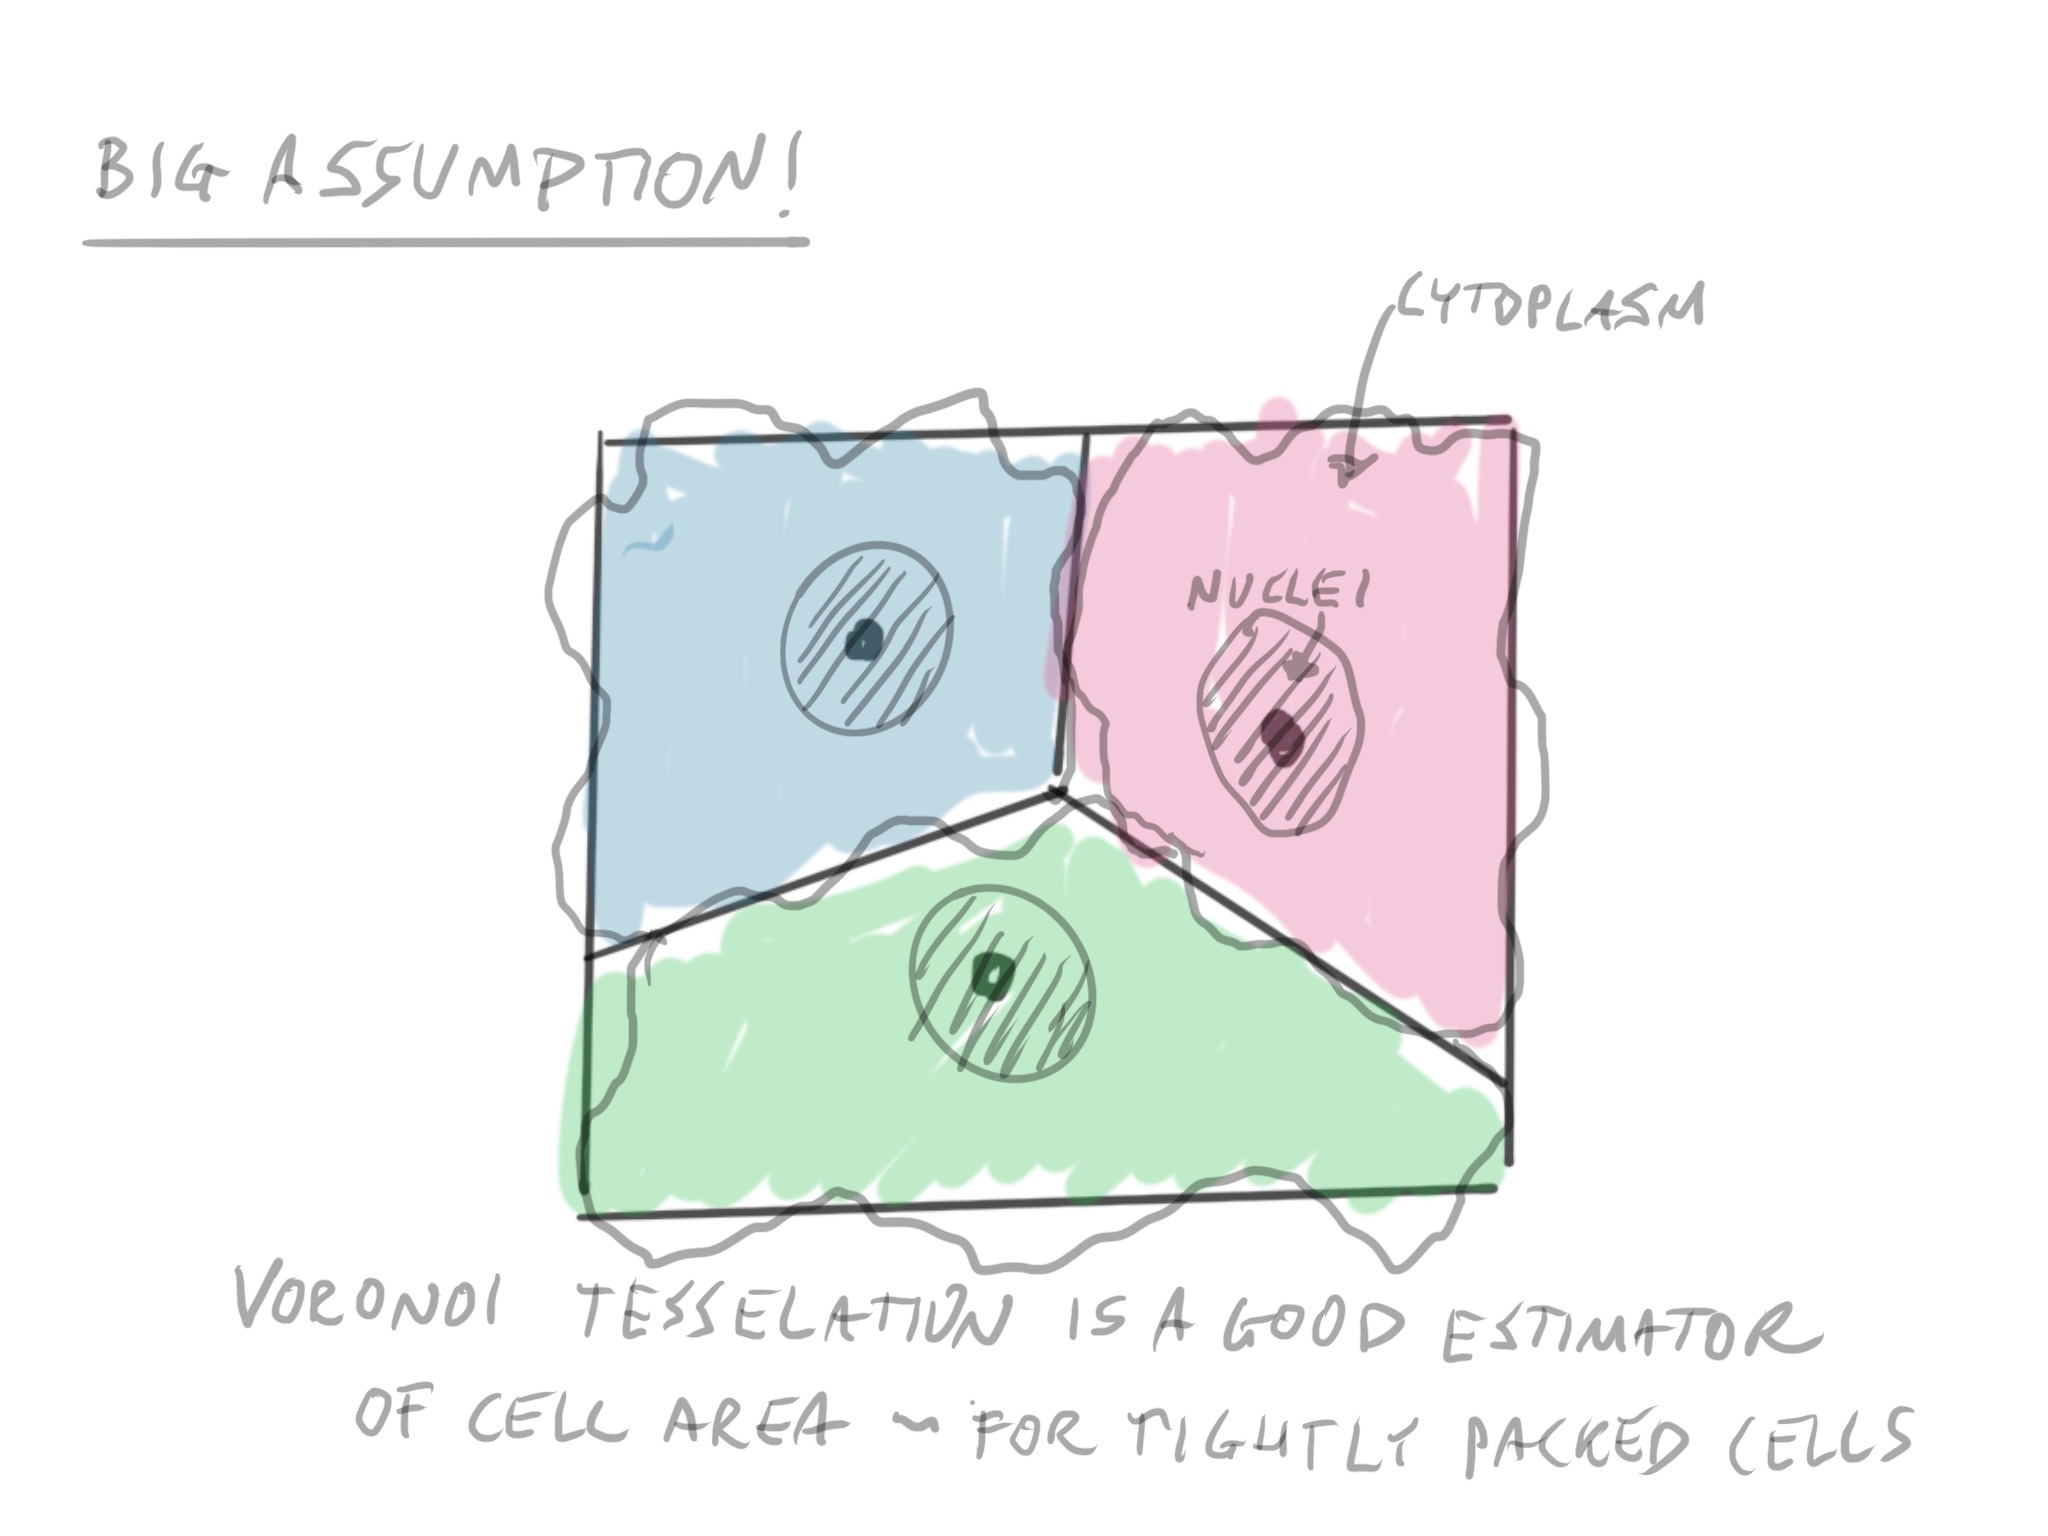 BIG ASSUMPTION!
CYTOPLASM
NUCLEI
VORONOI TESSELATION IS A GOOD ESTIMATOR
OF CELL AREA ~ FOR TIGHTLY PACKED CELLS